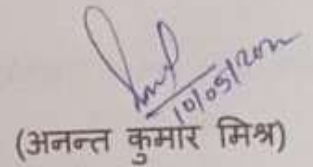 10/05/2022
(अनन्त कुमार मिश्र)